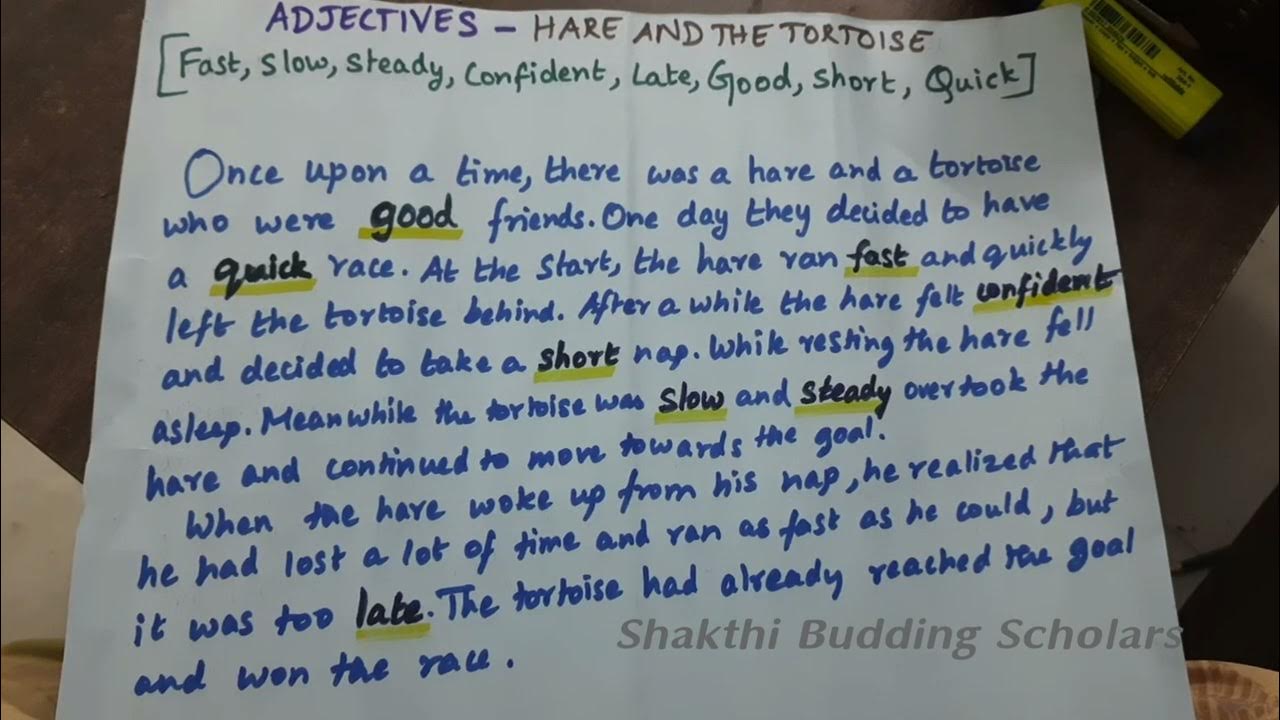 ADJECTIVES - HARE AND THE TORTOISE
[Fast, Slow, Steady, Confident, Late, Good, Short, Quick]
Once upon a time, there was a hare and a tortoise
who were good friends. One day they decided to have
a quick race. At the start, the hare ran fast and quickly
left the tortoise behind. After a while the hare felt confident
and decided to take a short nap. While resting the hare fell
asleep. Meanwhile the tortoise was slow and steady overtook the
hare and continued to move towards the goal.
When the hare woke up from his nap, he realized that
he had lost a lot of time and ran as fast as he could, but
it was too late. The tortoise had already reached the goal
and won the race.
Shakthi Budding Scholars